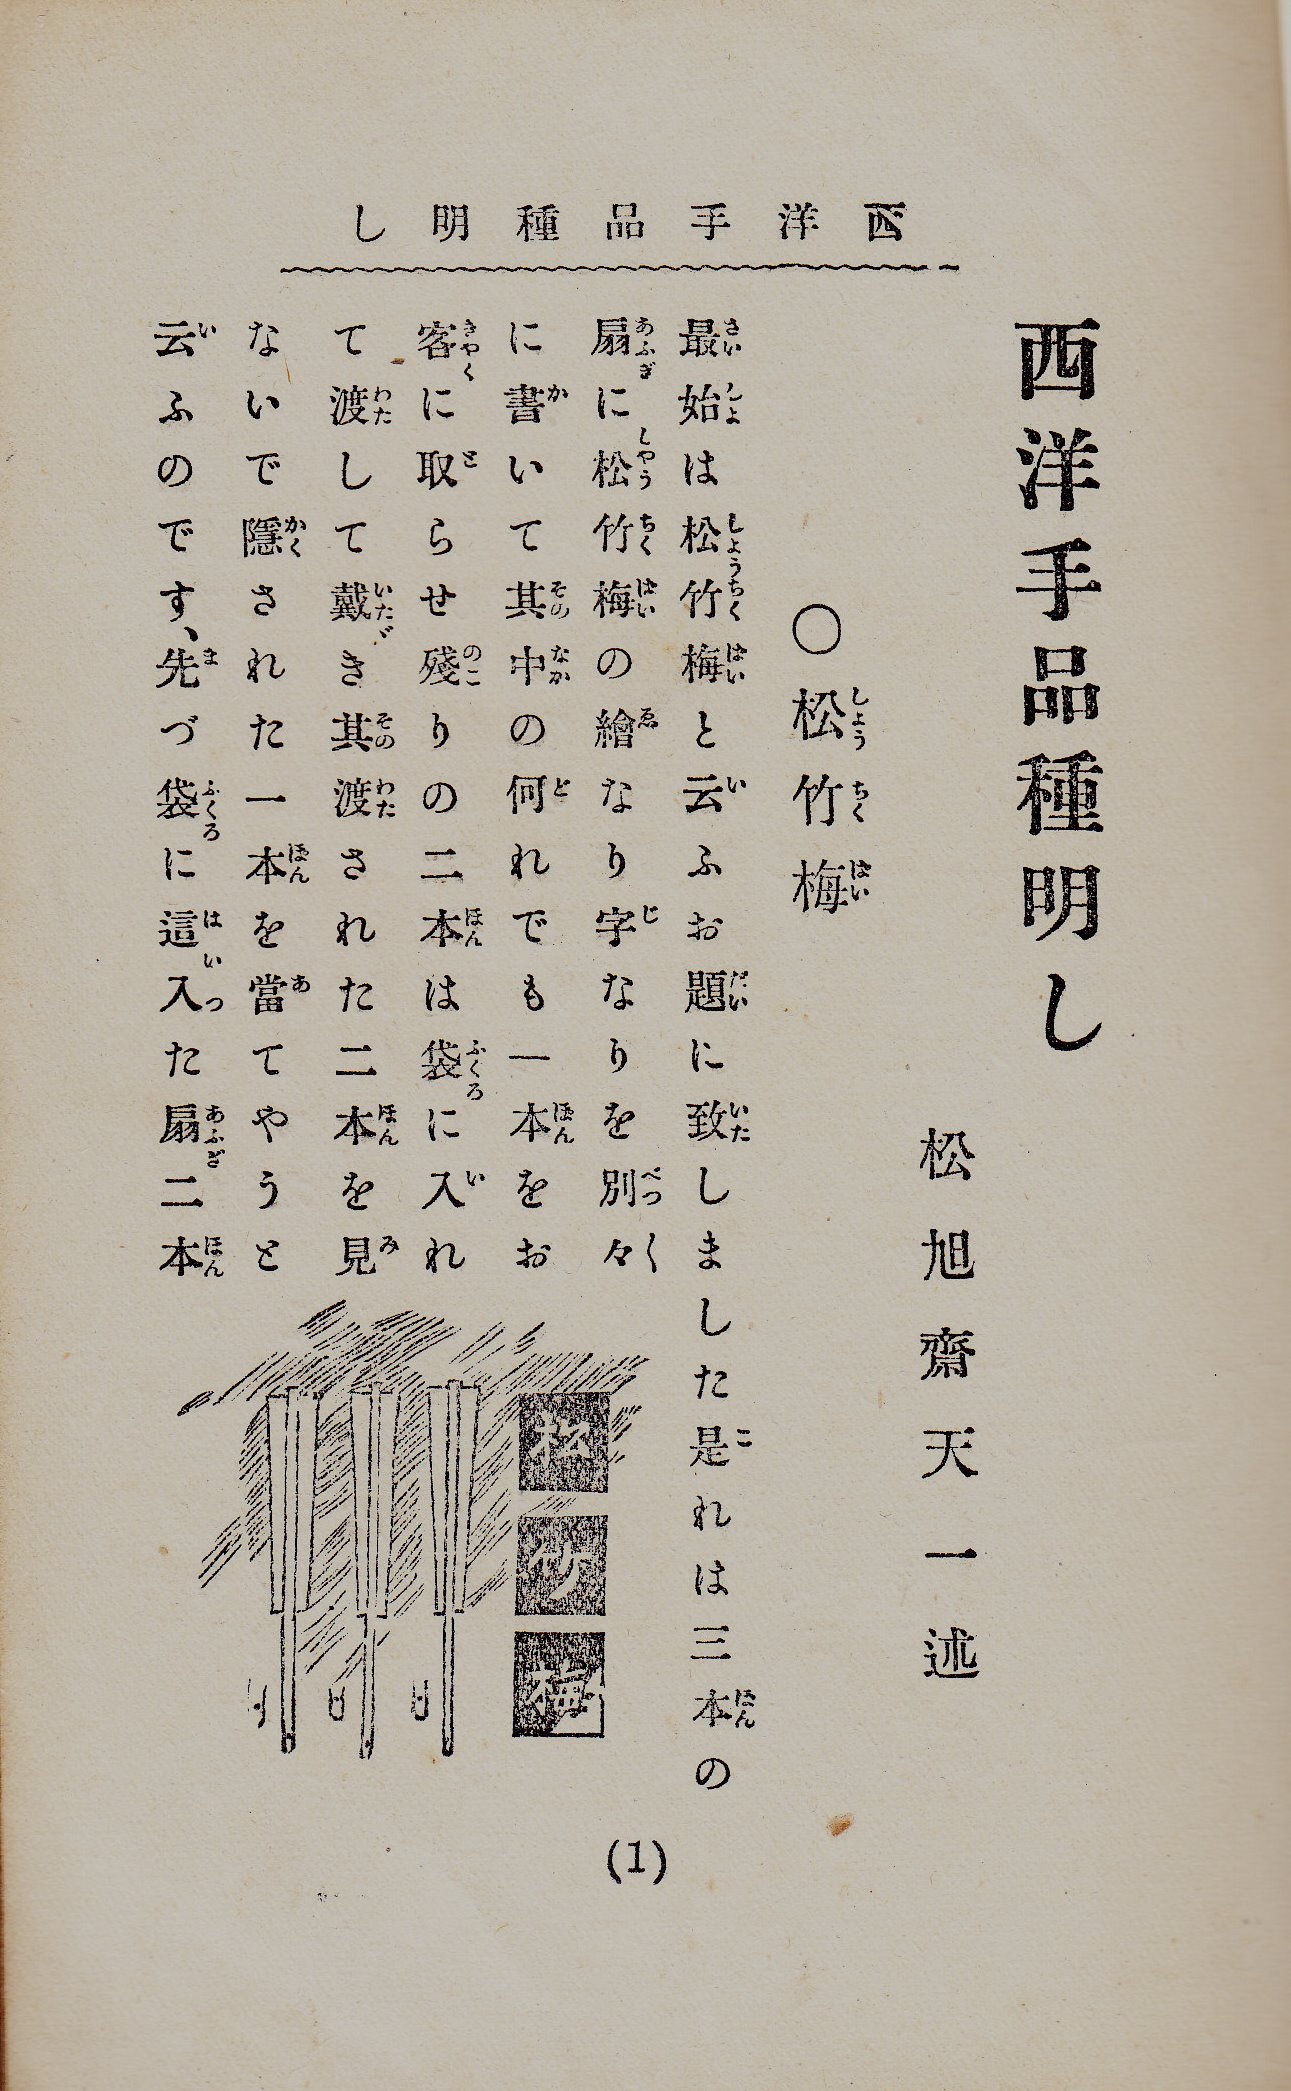 西洋手品種明し
西洋手品種明し
松旭齋天一述
〇松竹梅
最始は松竹梅と云ふお題に致しました是れは三本の
扇に松竹梅の繪なり字なりを別々
に書いて其中の何れでも一本をお
客に取らせ殘りの二本は袋に入れ
て渡して戴き其渡された二本を見
ないで隱された一本を當てやうと
云ふのです、先づ袋に這入た扇二本
松
竹
梅
(1)